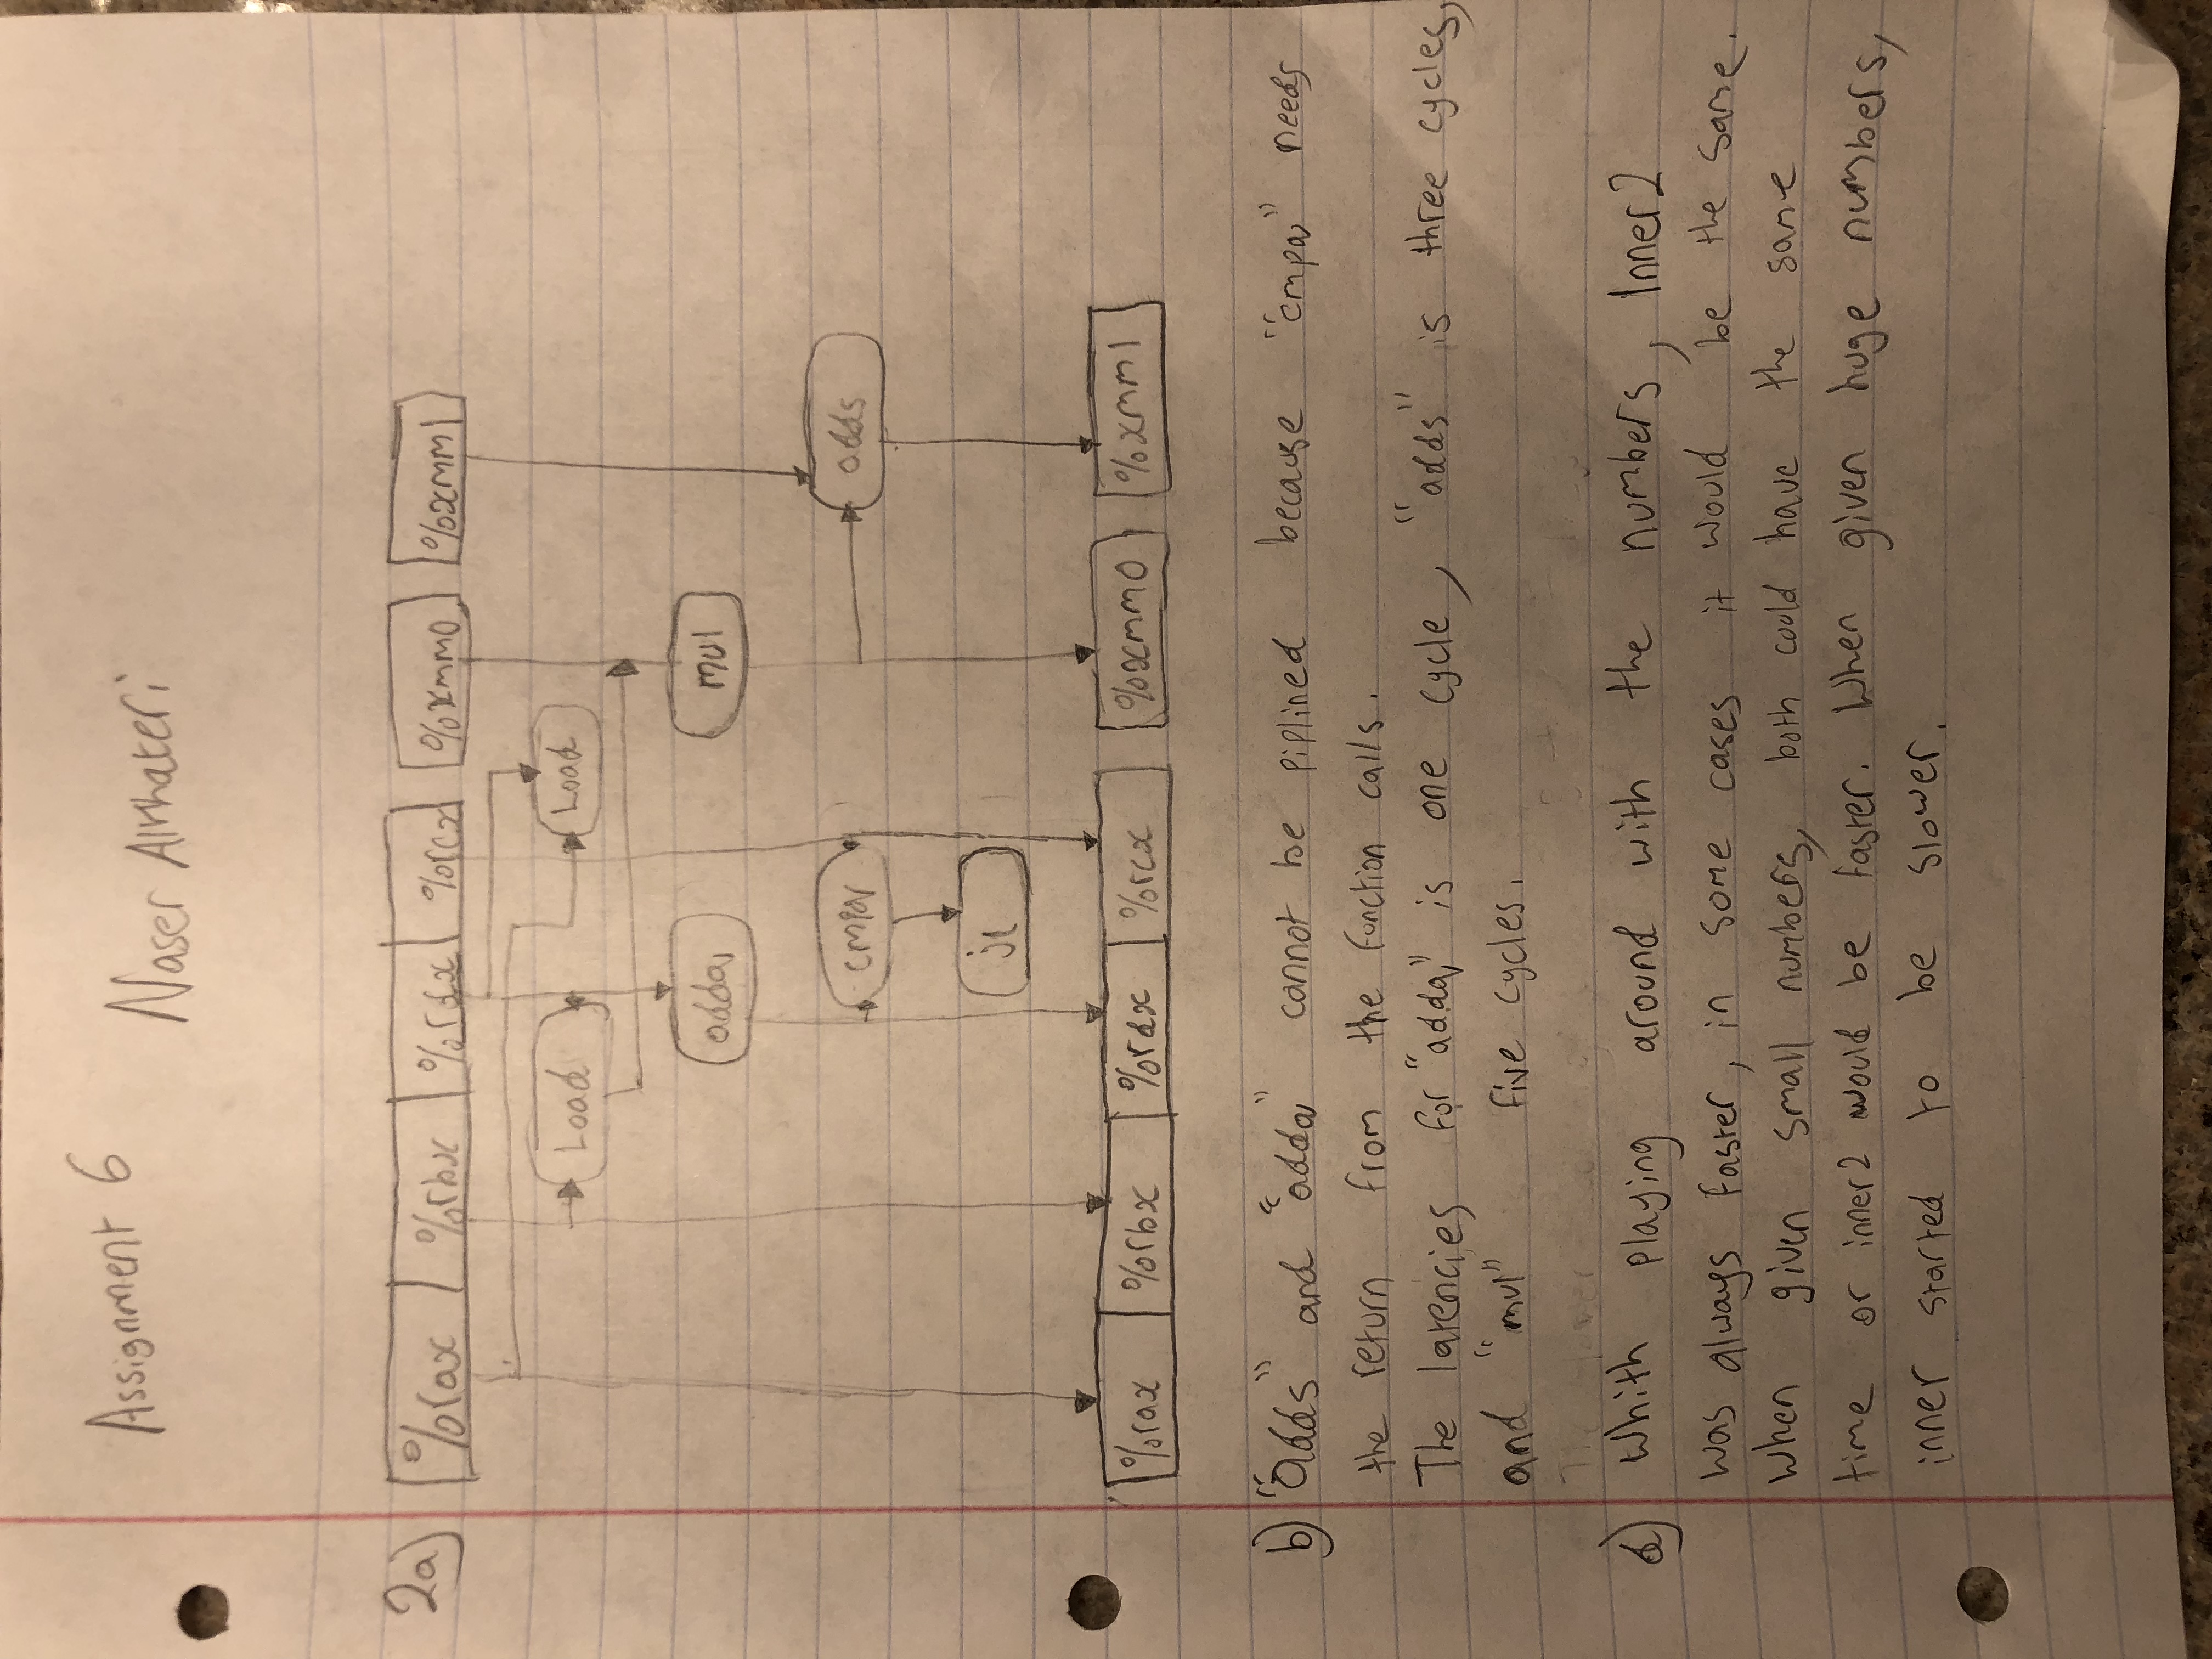 Assignment 6
Naser Alkhateri
2a) %rax %rbx %rdx %rcx %xmm0 %xmm1
Load Load
addq mul
cmpq adds
jl
%rax %rbx %rdx %rcx %xmm0 %xmm1
b) "adds" and "addq" cannot be piplined because "cmpq" needs
the return from the function calls.
The latencies for "addq" is one cycle, "adds" is three cycles,
and "mul" five cycles.
d) Whith playing around with the numbers, Inner2
was always faster, in some cases it would be the same.
When given small numbers, both could have the same
time or inner2 would be faster. When given huge numbers,
inner started to be slower.